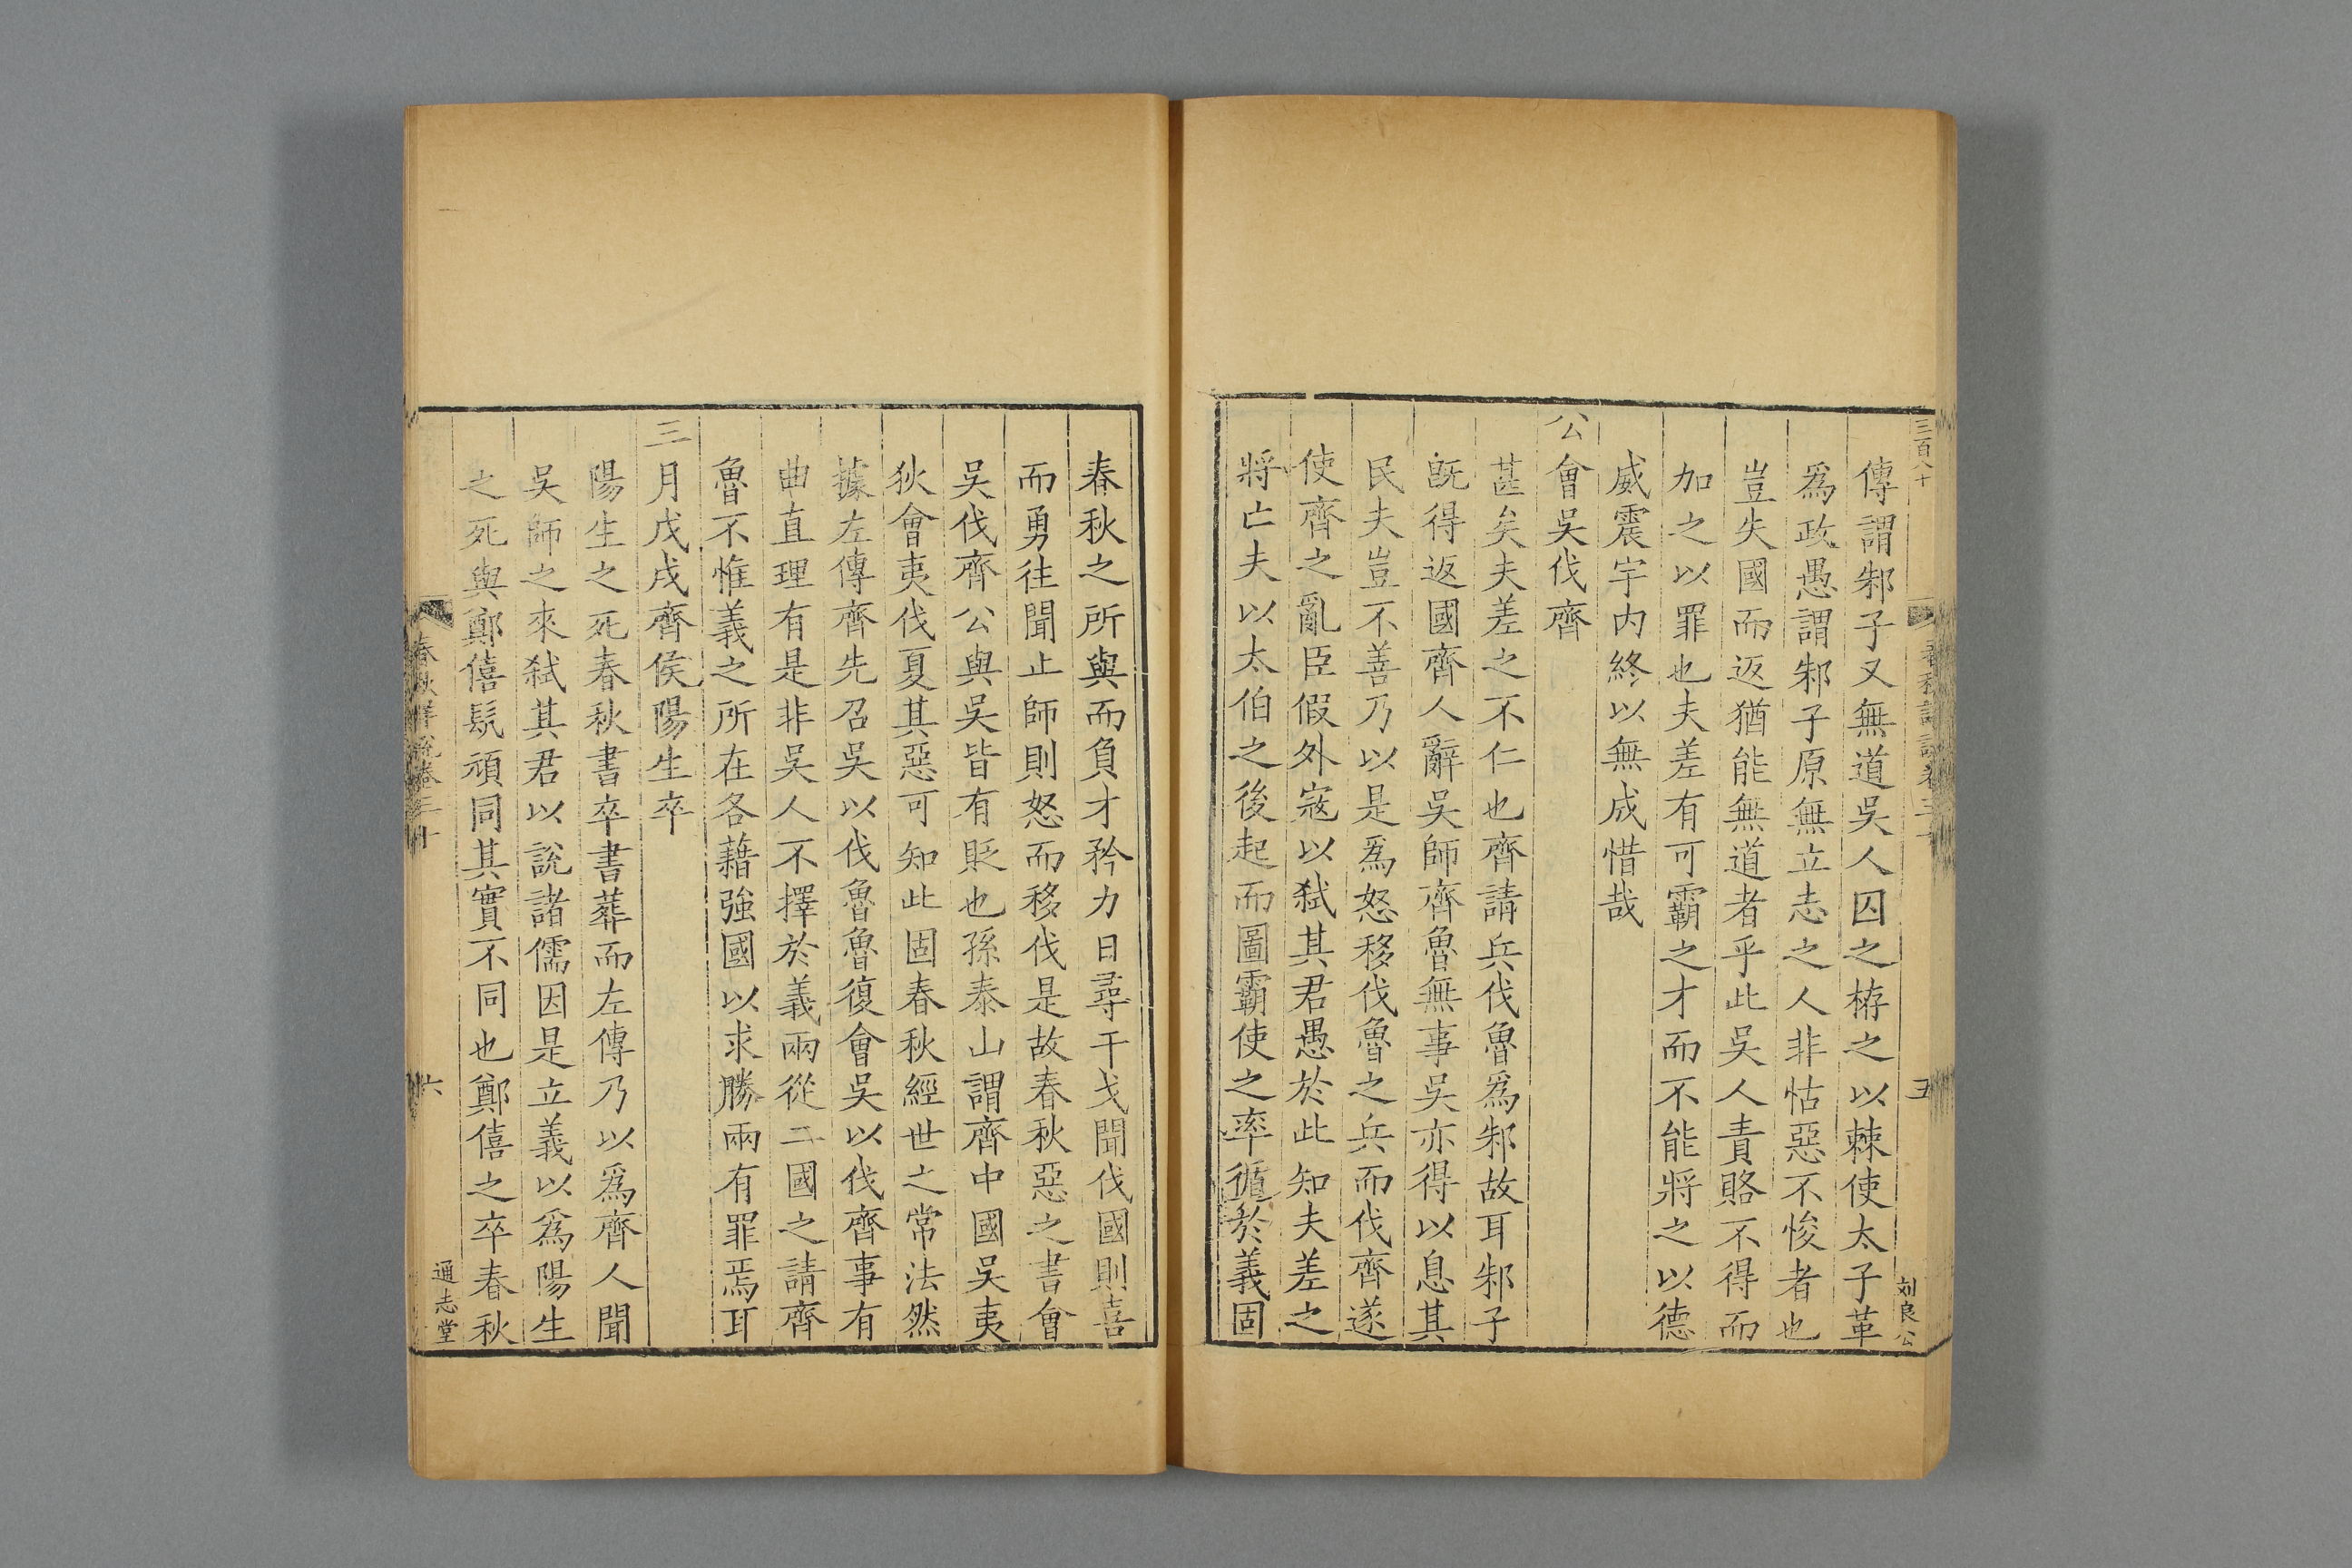 三百八十
春秋詳說卷三十
五
刘良公
傳謂邾子又無道吳人囚之栫之以棘使太子革
爲政愚謂邾子原無立志之人非怙惡不悛者也
豈失國而返猶能無道者乎此吳人責賂不得而
加之以罪也夫差有可霸之才而不能將之以德
威震宇内終以無成惜哉
公會吳伐齊
甚矣夫差之不仁也齊請兵伐魯爲邾故耳邾子
旣得返國齊人辭吳師齊魯無事吳亦得以息其
民夫豈不善乃以是爲怒移伐魯之兵而伐齊遂
使齊之亂臣假外寇以弑其君愚於此知夫差之
將亡夫以太伯之後起而圖霸使之率循於義固
春秋之所與而負才矜力日尋干戈聞伐國則喜
而勇往聞止師則怒而移伐是故春秋惡之書會
吳伐齊公與吳皆有貶也孫泰山謂齊中國吳夷
狄會夷伐夏其惡可知此固春秋經世之常法然
據左傳齊先召吳以伐魯魯復會吳以伐齊事有
曲直理有是非吳人不擇於義兩從二國之請齊
魯不惟義之所在各藉強國以求勝兩有罪焉耳
三月戊戌齊侯陽生卒
陽生之死春秋書卒書葬而左傳乃以爲齊人聞
吳師之來弑其君以說諸儒因是立義以爲陽生
之死與鄭僖髡頑同其實不同也鄭僖之卒春秋
春秋詳說卷三十
六
通志堂